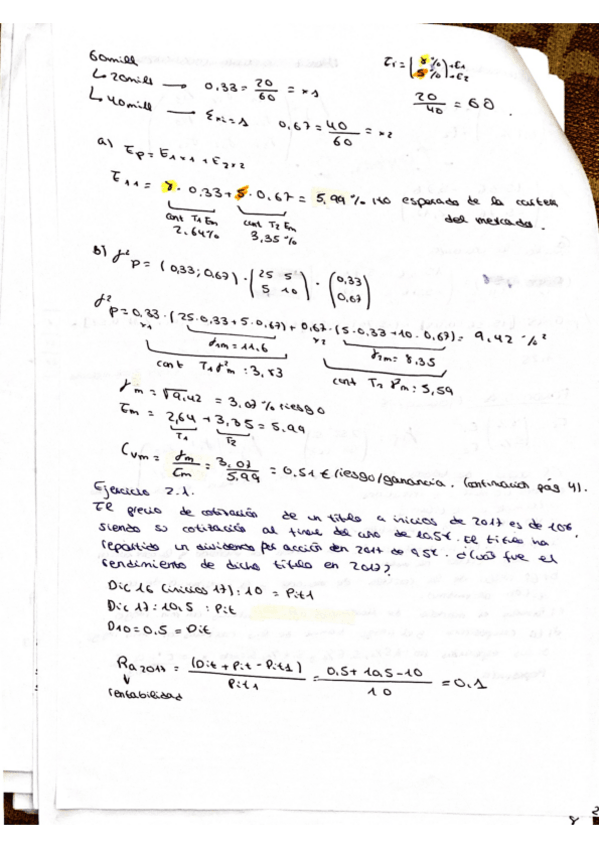 60mill
↳ 20mill → 0,33 = 20/60 = x1
↳ 40mill → Σxi = 1 0,67 = 40/60 = x2
E1 = (8% 5%) → E1 → E2
20/40 = 60.
a) Ep = E1x1 + E2x2
E11 = 8 · 0,33 + 5 · 0,67 = 5,99% rto esperado de la cartera
del mercado.
cont T1 Em cont T2 Em
2,64% 3,35%
b) σ²p = (0,33; 0,67) · (25 5 5 10) · (0,33 0,67)
σ²p = 0,33 · (25 · 0,33 + 5 · 0,67) + 0,67 · (5 · 0,33 + 10 · 0,67) = 9,42 %²
x1 σ1m = 11,6 x2 σ2m = 8,35
cont T1 σ²m : 3,83 cont T2 σ²m : 5,59
σm = √9,42 = 3,07% riesgo
Em = 2,64 + 3,35 = 5,99
T1 T2
CVm = σm/Em = 3,07/5,99 = 0,51 € riesgo/ganancia. (continuación pág 4).
Ejercicio 2.1.
El precio de cotización de un título a inicios de 2017 es de 10€,
siendo su cotización al final del año de 10,5€. El título ha
repartido un dividendo por acción en 2017 de 0,5€. ¿Cuál fue el
rendimiento de dicho título en 2017?
Dic 16 (inicios 17): 10 = Pit1
Dic 17: 10,5 : Pit
D10 = 0,5 = Dit
Ra2017 = (Dit + Pit - Pit1)/Pit1 = 0,5 + 10,5 - 10/10 = 0,1
rentabilidad